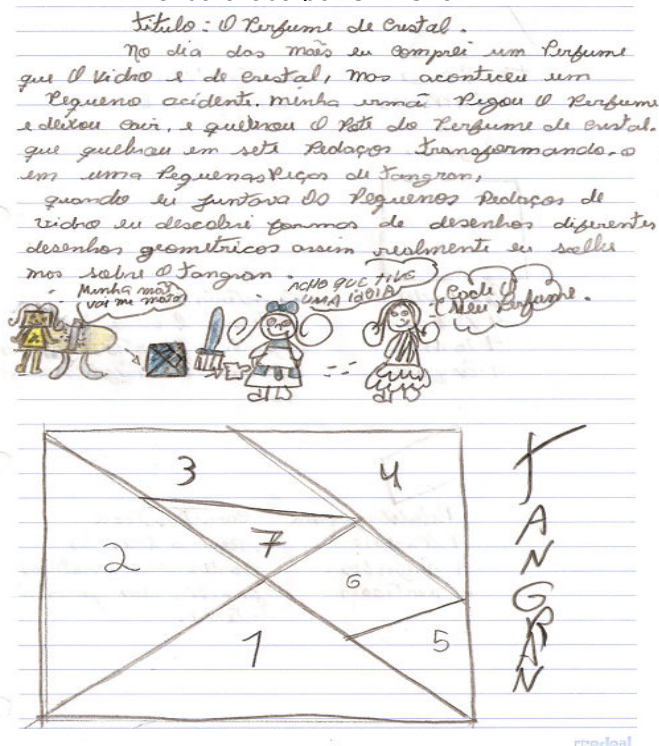 Título: O Perfume de Cristal.
No dia das mães eu comprei um Perfume
que O vidro é de cristal, mas aconteceu um
Pequeno acidente. minha irmã Pegou O Perfume
e deixou cair, e quebrou O Pote do Perfume de cristal.
que quebrou em sete Pedaços transformando-o
em uma Pequenas Peças de Tangran,
quando eu juntava Os Pequenos Pedaços de
vidro eu descobri formas de desenhos diferentes
desenhos geometricos assim realmente eu
mos sobre O tangran.
Minha mãe
vai me mata
ACHO QUE TIVE
UMA IDÉIA
Cade O
Meu Perfume.
3
4
7
2
6
1
5
TANGRAN